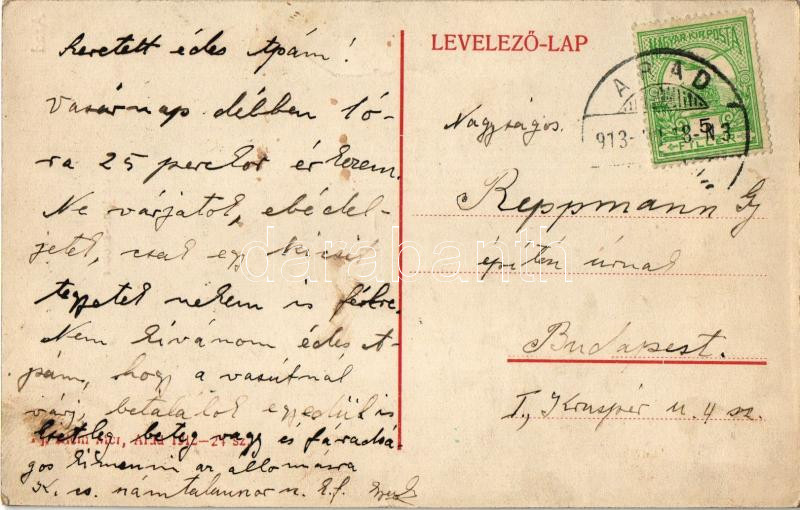 Szeretett édes Apám!
Vasárnap délben 1 ó-
ra 25 perckor érkezem.
Ne várjatok, ebédel-
jetek, csak egy kicsit
tegyetek nekem is félre.
Nem kívánom édes A-
pám, hogy a vasútnál
várj, betalálok egyedül is
esetleg beteg vagy és fáradsá-
gos kimenni az állomásra
LEVELEZŐ-LAP
MAGYAR KIR. POSTA
5
FILLÉR
ARAD
913
Nagyságos
Reppmann Gy
építész úrnak
Budapest.
I., Kruspér u. 4 sz.
darabanth
Arad 1912